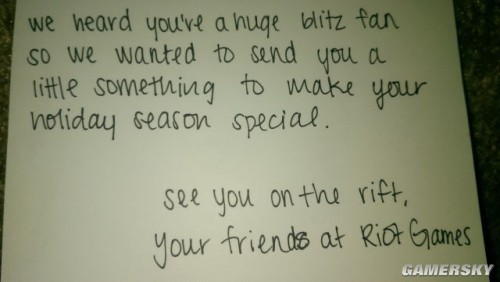 we heard you're a huge blitz fan
so we wanted to send you a
little something to make your
holiday season special.
see you on the rift,
your friends at Riot Games
GAMERSKY